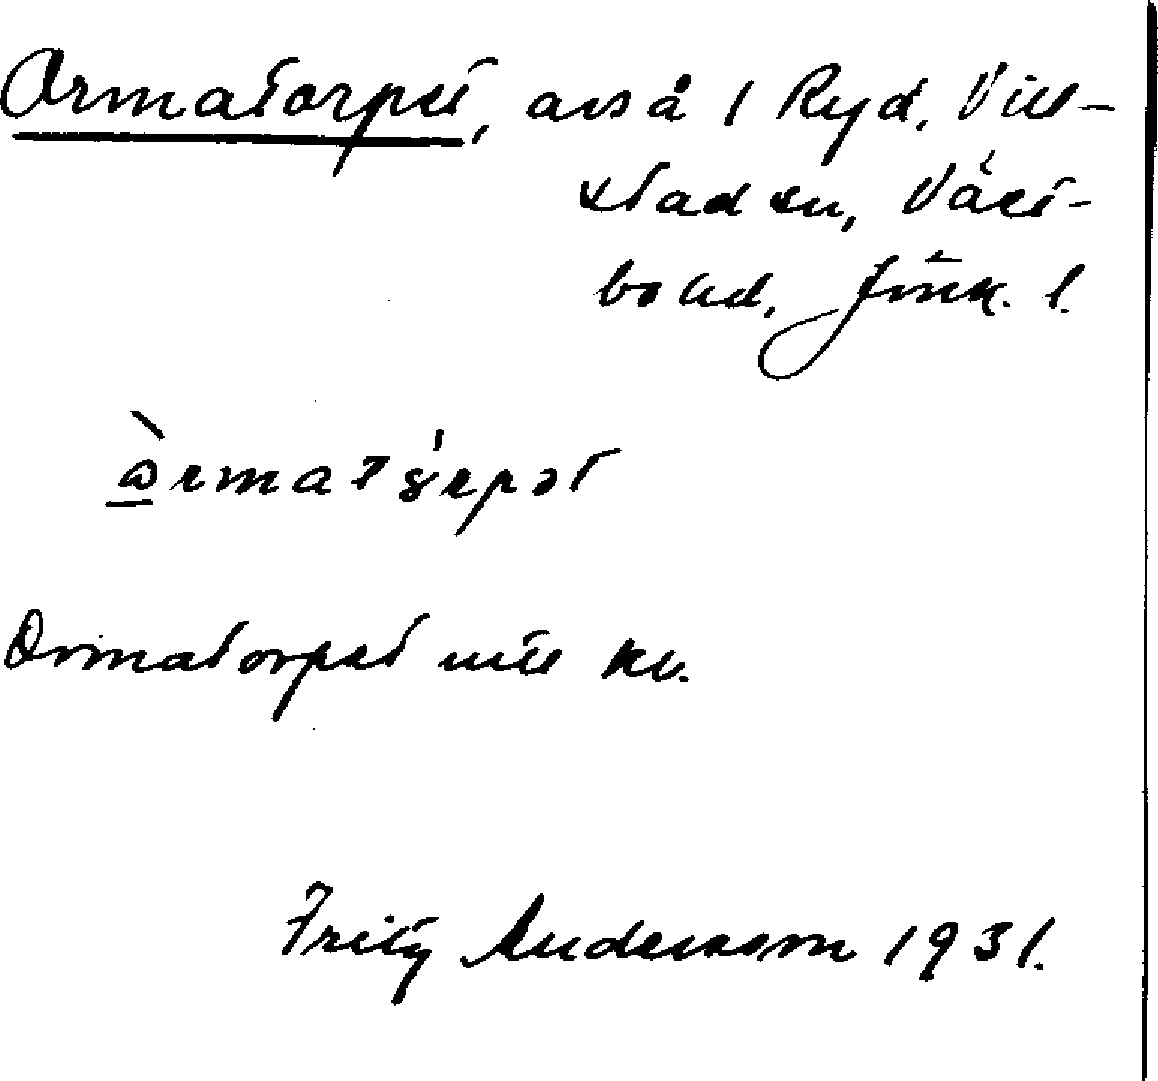 Ormatorpet, avs å 1 Ryd, Vill-
stad sn, Väst-
bo hd, Jönk. l.
Ormatorpet utt kv.
Fritz Andersson 1931.